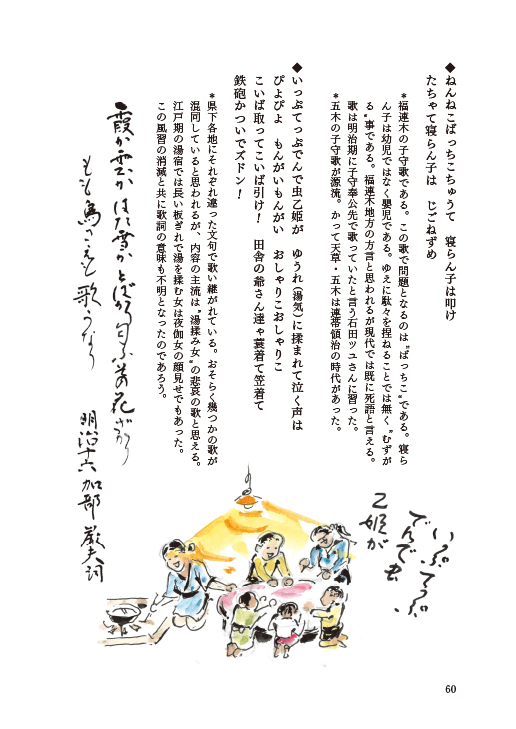 ◆ねんねこばっちこちゅうて　寝らん子は叩け
たちゃて寝らん子は　じごねずめ
＊福連木の子守歌である。この歌で問題となるのは〝ばっちこ〟である。寝ら
ん子は幼児ではなく嬰児である。ゆえに駄々を捏ねることでは無く〝むずが
る〟事である。福連木地方の方言と思われるが現代では既に死語と言える。
歌は明治期に子守奉公先で歌っていたと言う石田ツユさんに習った。
＊五木の子守歌が源流。かって天草・五木は連帯領治の時代があった。
◆いっぷてっぷでんで虫乙姫が　ゆうれ（湯気）に揉まれて泣く声は
ぴよぴよ　もんがいもんがい　おしゃりこおしゃりこ
こいば取ってこいば引け！　田舎の爺さん達ゃ蓑着て笠着て
鉄砲かついでズドン！
＊県下各地にそれぞれ違った文句で歌い継がれている。おそらく幾つかの歌が
混同していると思われるが、内容の主流は〝湯揉み女〟の悲哀の歌と思える。
江戸期の湯宿では長い板ぎれで湯を揉む女は夜伽女の顔見せでもあった。
この風習の消滅と共に歌詞の意味も不明となったのであろう。
霞か雲かはた雪かとばかり匂ふその花ざかり
もも鳥さえも歌うなり
明治十六　加部　厳夫詞
いっぷてっぷ
でんで虫
乙姫が
60